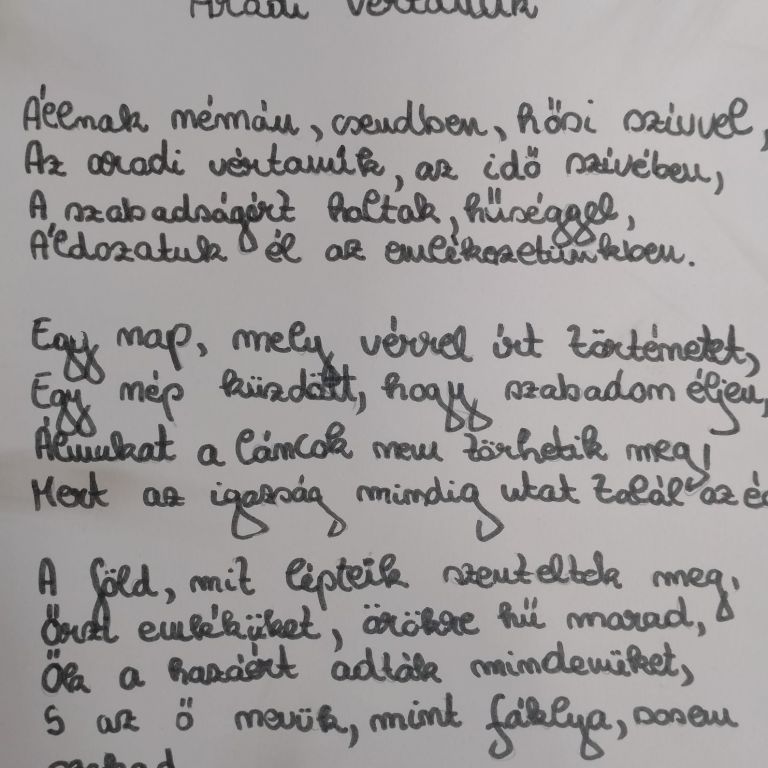 Aradi vértanúk
Állnak némán, csendben, hősi szívvel,
Az aradi vértanúk, az idő szívében,
A szabadságért haltak, hűséggel,
Áldozatuk él az emlékezetünkben.
Egy nap, mely vérrel írt történetet,
Egy nép küzdött, hogy szabadon éljen,
Álmukat a láncok nem törhetik meg,
Mert az igazság mindig utat talál az
A föld, mit lépteik szenteltek meg,
Őrzi emléküket, örökre hű marad,
Ők a hazáért adták mindenüket,
S az ő nevük, mint fáklya, sosem